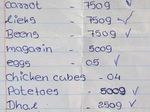 Carrot - 750g
lieks - 750g ✓
Beans - 750g ✓
magarin - 500g
eggs - 05 ✓
chicken cubes - 04
Potetoes - 500g
Dhal - 250g ✓